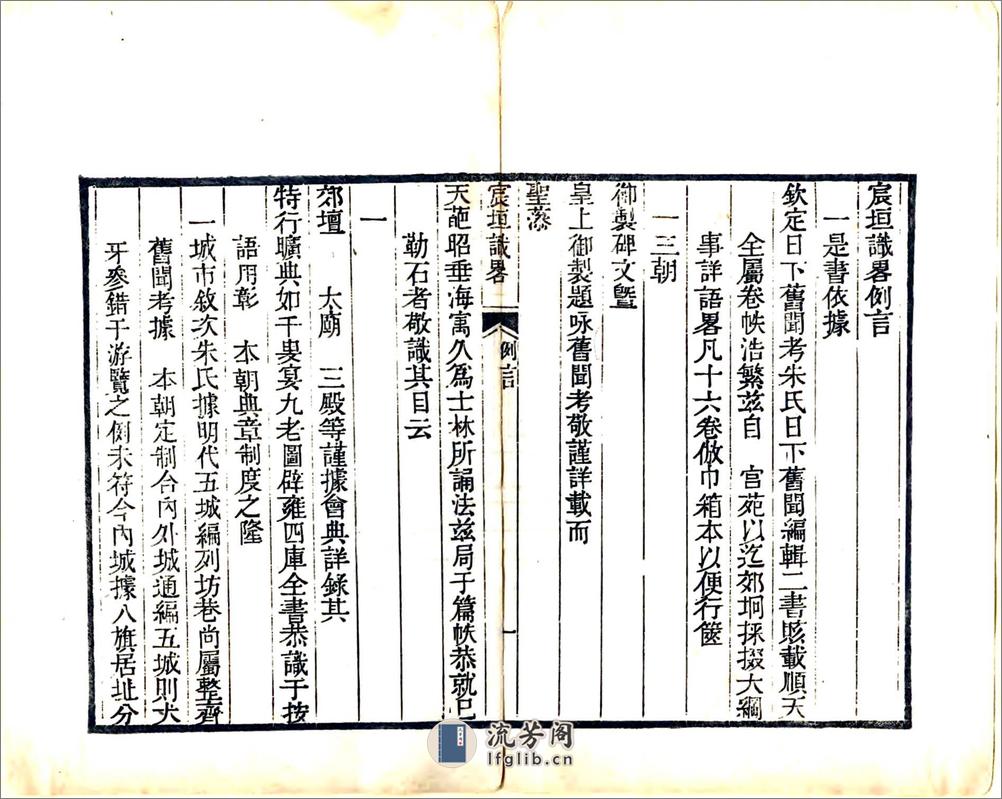 宸垣識畧例言
一是書依據
欽定日下舊聞考朱氏日下舊聞編輯二書賅載順天
全屬卷帙浩繁兹自　宫苑以迄郊坰採掇大綱
事詳語畧凡十六卷倣巾箱本以便行篋
一三朝
御製碑文暨
皇上御製題咏舊聞考敬謹詳載而
聖藻
宸垣識畧　例言　一
天葩昭垂海寓久爲士林所誦法兹局于篇帙恭就已
勒石者敬識其目云
一
郊壇　太廟　三殿等謹據會典詳錄其
特行曠典如千叟宴九老圖辟雍四庫全書恭識于按
語用彰　本朝典章制度之隆
一城市敘次朱氏據明代五城編列坊巷尚屬整齊
舊聞考據　本朝定制合內外城通編五城則犬
牙參錯于游覽之例未符今內城據八旗居址分
流芳阁
lfglib.cn